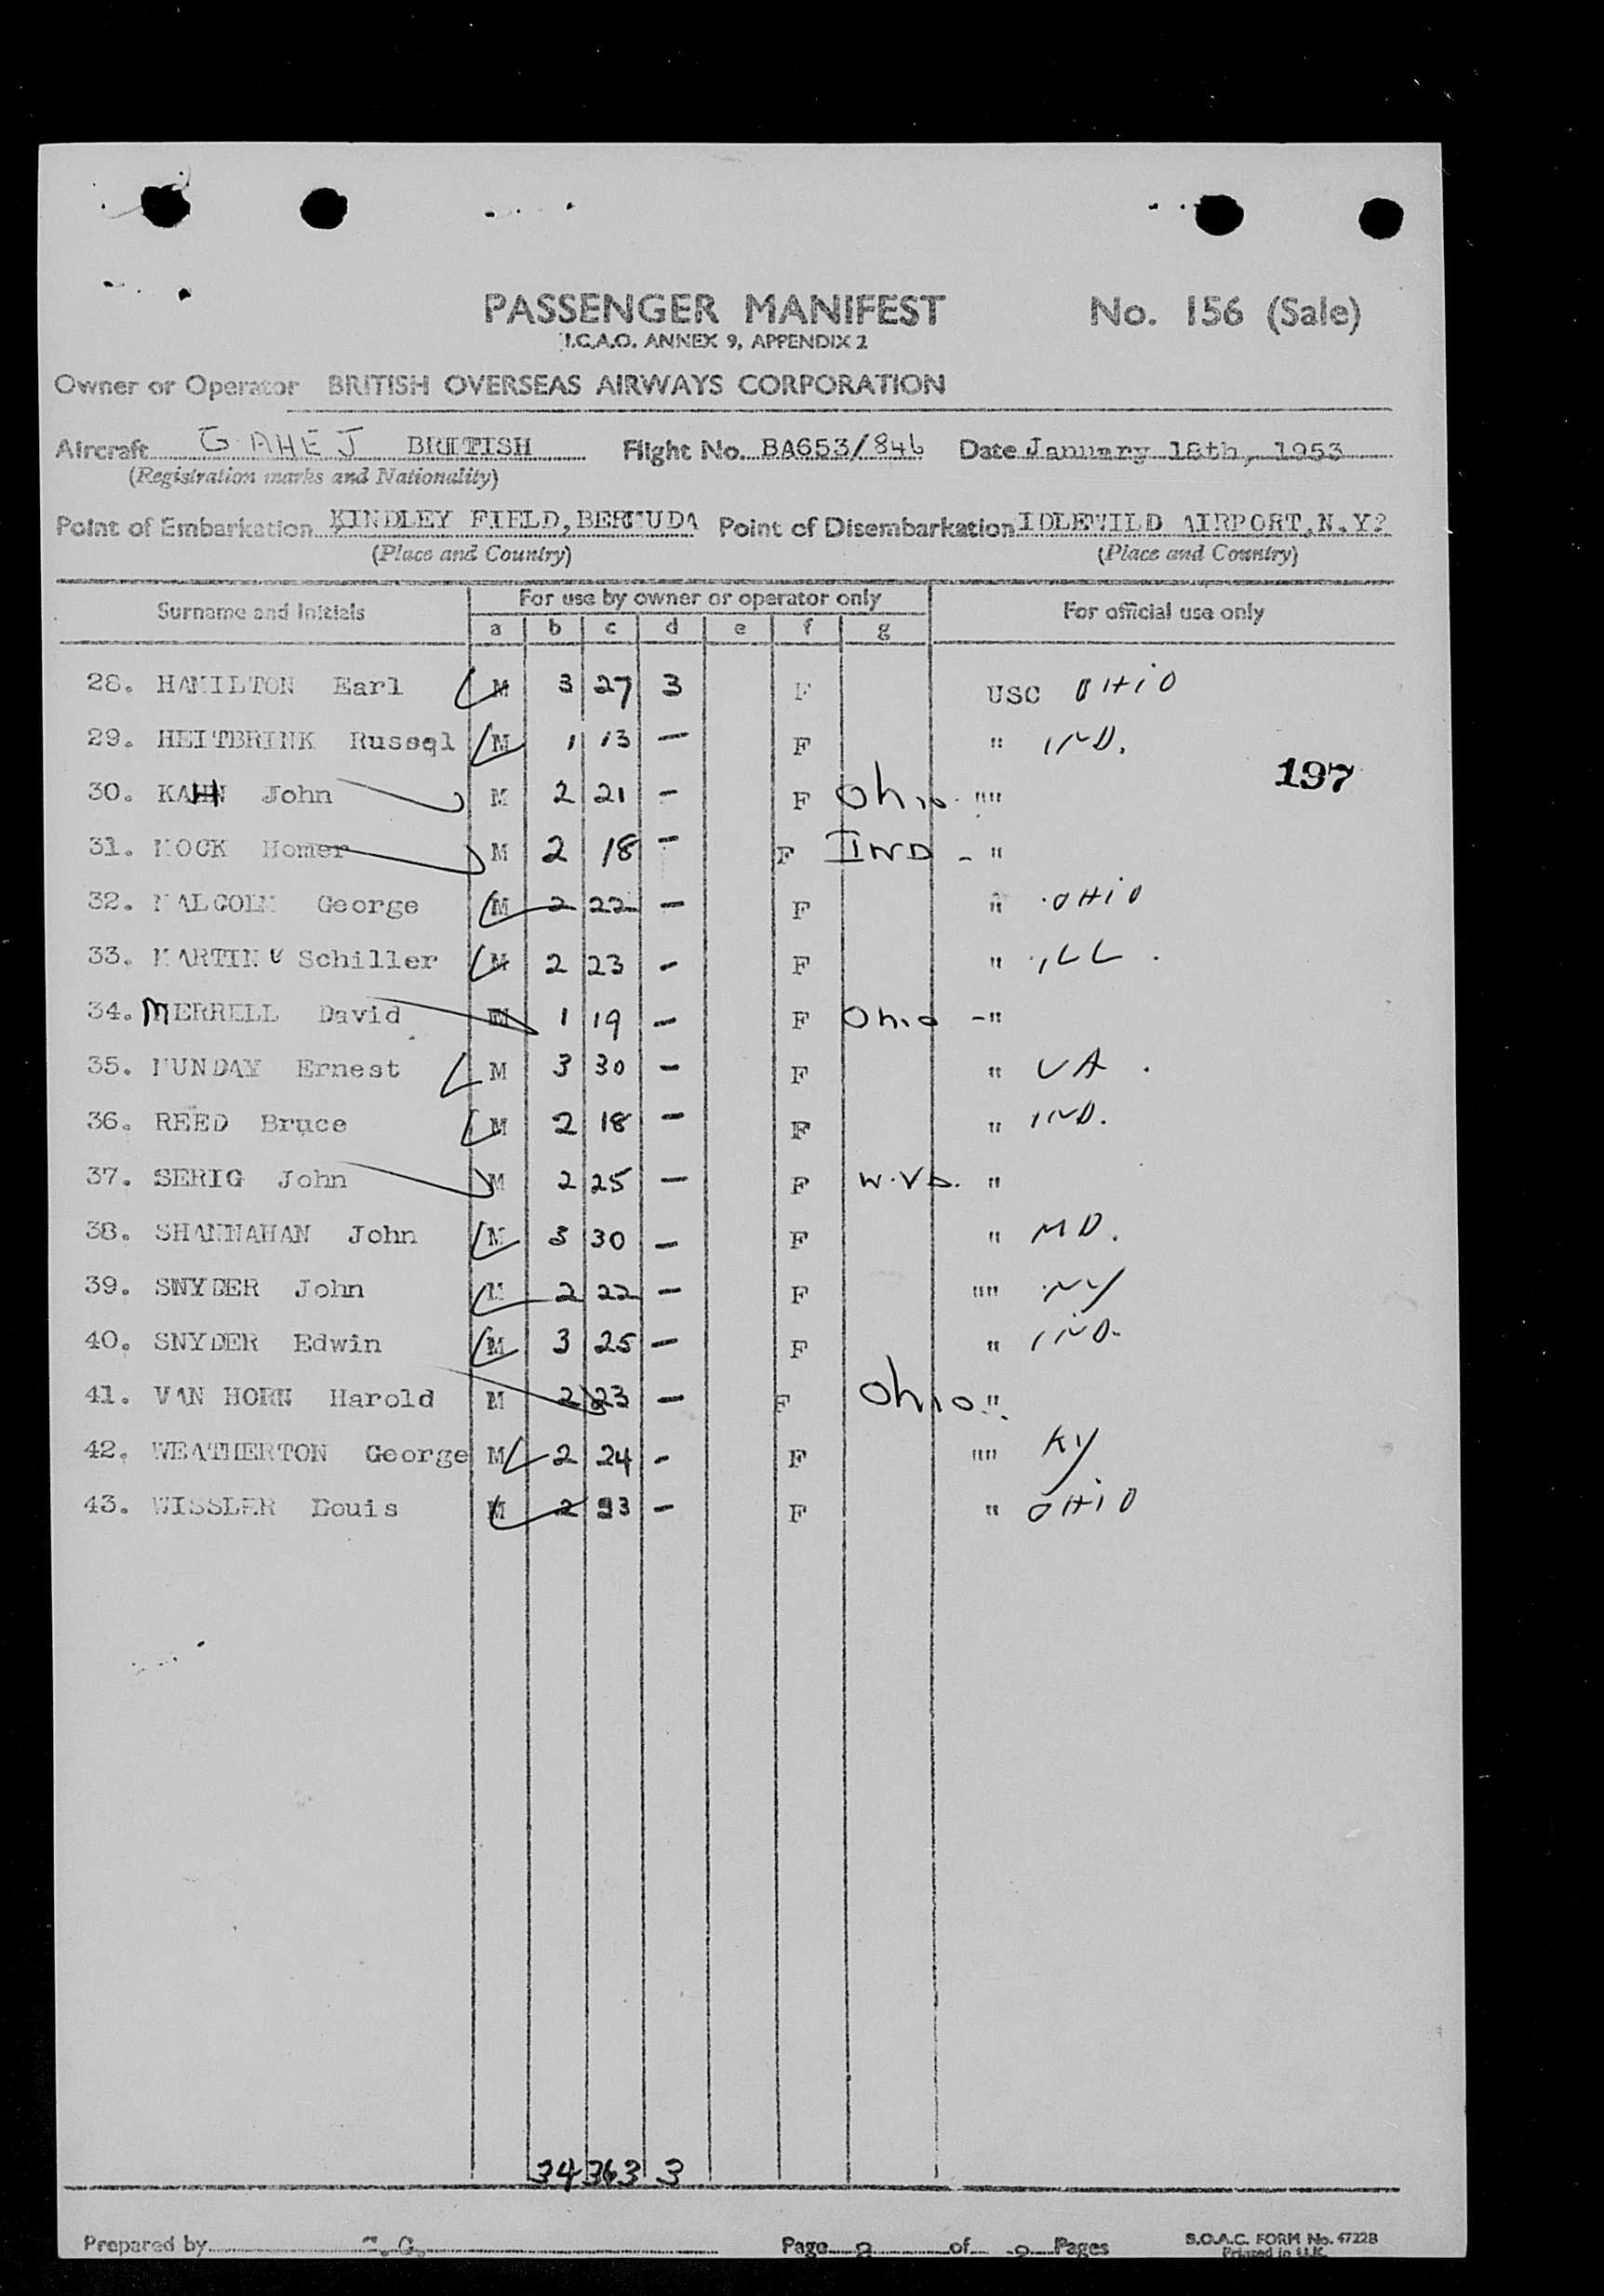 PASSENGER MANIFEST No. 156 (Sale)
I.C.A.O. ANNEX 9, APPENDIX 2
Owner or Operator BRITISH OVERSEAS AIRWAYS CORPORATION
Aircraft G AHEJ BRITISH Flight No. BA653/846 Date January 18th, 1953
(Registration marks and Nationality)
Point of Embarkation KINDLEY FIELD, BERMUDA Point of Disembarkation IDLEWILD AIRPORT, N.Y?
(Place and Country) (Place and Country)
Surname and Initials For use by owner or operator only For official use only
a b c d e f g
28. HAMILTON Earl M 3 27 3 F USC OHIO
29. HEITBRINK Russel M 1 13 — F " IND.
30. KAHN John M 2 21 — F Ohio. ""
197
31. MOCK Homer M 2 18 — F IND - "
32. MALCOLM George M 2 22 — F " OHIO
33. MARTIN Schiller M 2 23 — F " ILL.
34. MERRELL David M 1 19 — F Ohio -"
35. MUNDAY Ernest M 3 30 — F " VA.
36. REED Bruce M 2 18 — F " IND.
37. SERIG John M 2 25 — F W.Va. "
38. SHANNAHAN John M 3 30 — F " MD.
39. SNYDER John M 2 22 — F "" NY
40. SNYDER Edwin M 3 25 — F " IND.
41. VAN HORN Harold M 2 23 — F Ohio "
42. WEATHERTON George M 2 24 - F "" KY
43. WISSLER Louis M 2 23 — F " OHIO
34 363 3
Prepared by Page of Pages B.O.A.C. FORM No. 4722B
Printed in U.K.